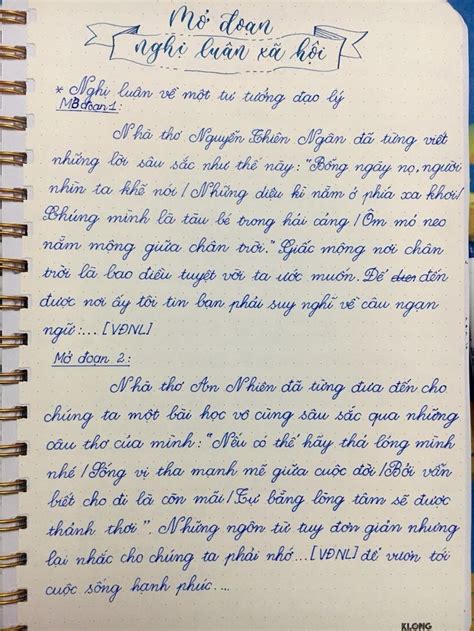 Mở đoạn
nghị luận xã hội
* Nghị luận về một tư tưởng đạo lý
Mở đoạn 1:
Nhà thơ Nguyễn Thiên Ngân đã từng viết
những lời sâu sắc như thế này: "Bỗng ngày nọ, người
nhìn ta khẽ nói / Những diệu kì nằm ở phía xa khơi /
Chúng mình là tàu bé trong hải cảng / Ôm mỏ neo
nằm mộng giữa chân trời." Giấc mộng nơi chân
trời là bao điều tuyệt vời ta ước muốn. Để đến
được nơi ấy tôi tin bạn phải suy nghĩ về câu ngạn
ngữ:... [VĐNL]
Mở đoạn 2:
Nhà thơ An Nhiên đã từng đưa đến cho
chúng ta một bài học vô cùng sâu sắc qua những
câu thơ của mình: "Nếu có thể hãy thả lỏng mình
nhé / Sống vị tha mạnh mẽ giữa cuộc đời / Bởi vẫn
biết cho đi là còn mãi / Tự bằng lòng tâm sẽ được
thảnh thơi". Những ngôn từ tuy đơn giản nhưng
lại nhắc cho chúng ta phải nhớ...[VĐNL] để vươn tới
cuộc sống hạnh phúc....
KLONG